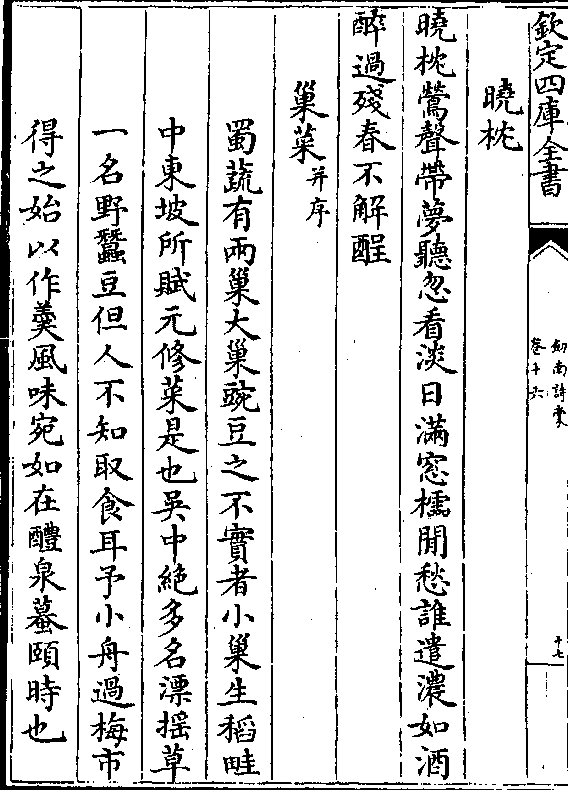 欽定四庫全書
劒南詩稾
卷十六
十七
曉枕
曉枕鶯聲帶夢聽忽看淡日滿窓櫺閒愁誰遣濃如酒
醉過殘春不解酲
巢菜并序
蜀蔬有兩巢大巢豌豆之不實者小巢生稻畦
中東坡所賦元修菜是也吳中絶多名漂揺草
一名野蠶豆但人不知取食耳予小舟過梅市
得之始以作羮風味宛如在醴泉蟇頤時也